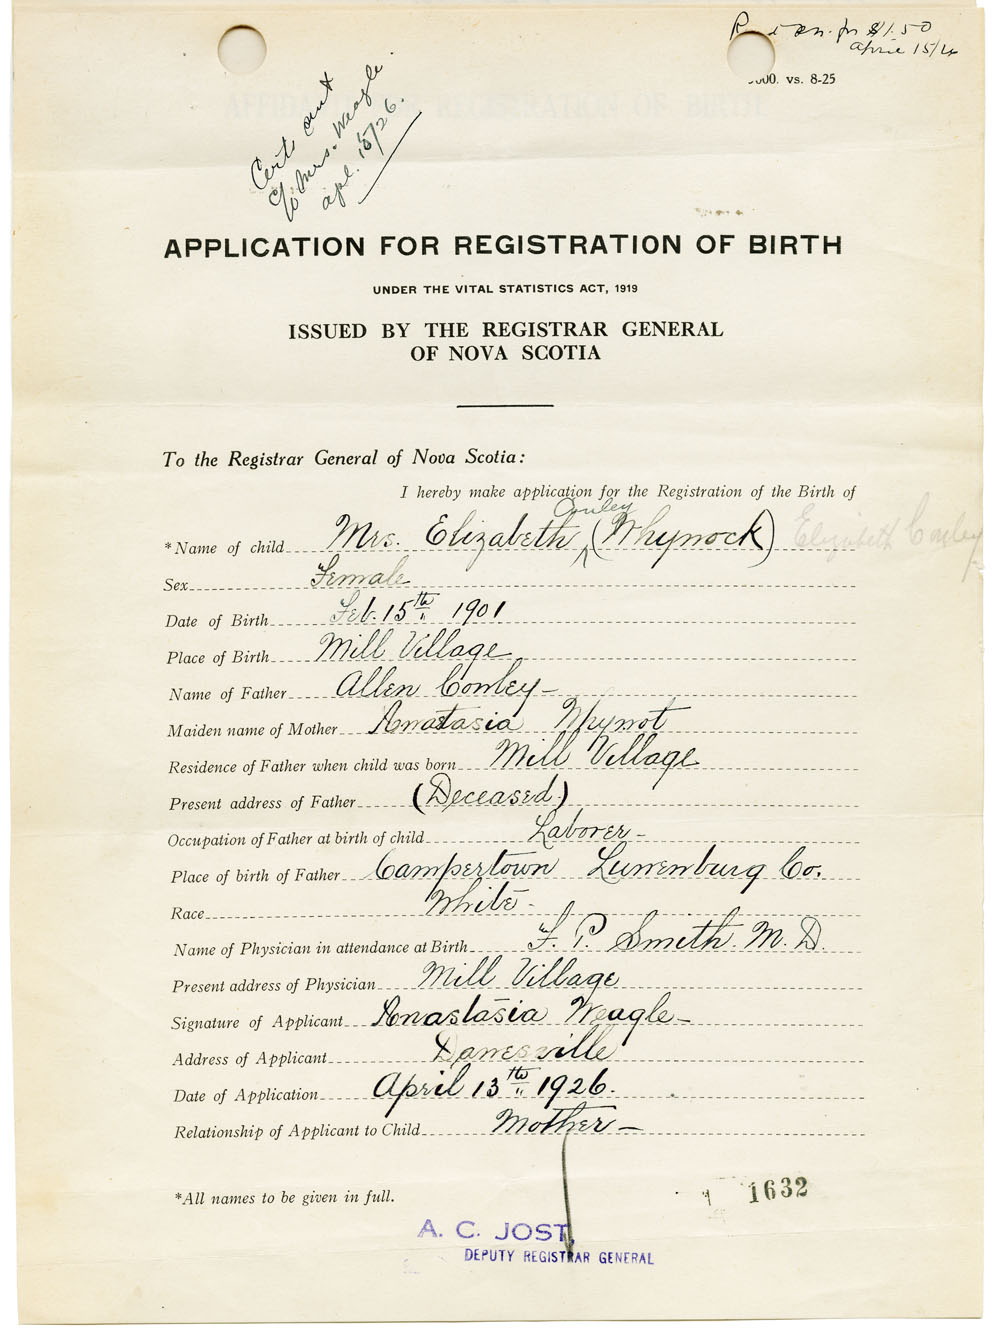 for $1.50
April 15/26
000. vs. 8-25
Cert. sent
c/o Mrs. Weagle
apl. 15/26.
APPLICATION FOR REGISTRATION OF BIRTH
UNDER THE VITAL STATISTICS ACT, 1919
ISSUED BY THE REGISTRAR GENERAL
OF NOVA SCOTIA
To the Registrar General of Nova Scotia:
I hereby make application for the Registration of the Birth of
Conley
*Name of child Mrs. Elizabeth ^ (Whynock) Elizabeth Conley
Sex Female
Date of Birth Feb. 15th 1901
Place of Birth Mill Village
Name of Father Allen Conley -
Maiden name of Mother Anastasia Whynot
Residence of Father when child was born Mill Village
Present address of Father (Deceased)
Occupation of Father at birth of child Laborer -
Place of birth of Father Campertown Lunenburg Co.
Race White -
Name of Physician in attendance at Birth F. P. Smith. M. D.
Present address of Physician Mill Village
Signature of Applicant Anastasia Weagle -
Address of Applicant Danesville
Date of Application April 13th 1926.
Relationship of Applicant to Child Mother -
*All names to be given in full.
1632
A. C. JOST,
DEPUTY REGISTRAR GENERAL